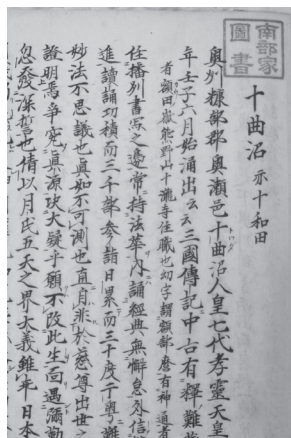 南部家
圖書
十曲沼 亦十和田
奥刕糠部郡奥瀬邑十曲沼人皇七代孝靈天皇
年壬子六月始涌出云云三國傳記中古有釋難
者額田嶽熊野山十瀧寺住職也切字謂額部麿有神通者
住播刕書寫之邊常持法華内誦經典無懈怠外信
進讀誦功積而三千部参詣日累而三十度于粤難
妙法不思議也真如不可測也直是非於慈尊出世之
證明焉爭究真源决大疑乎願不改此生而遇彌勒
忽發深誓也倩以月氏五天之界大義雖牢日本